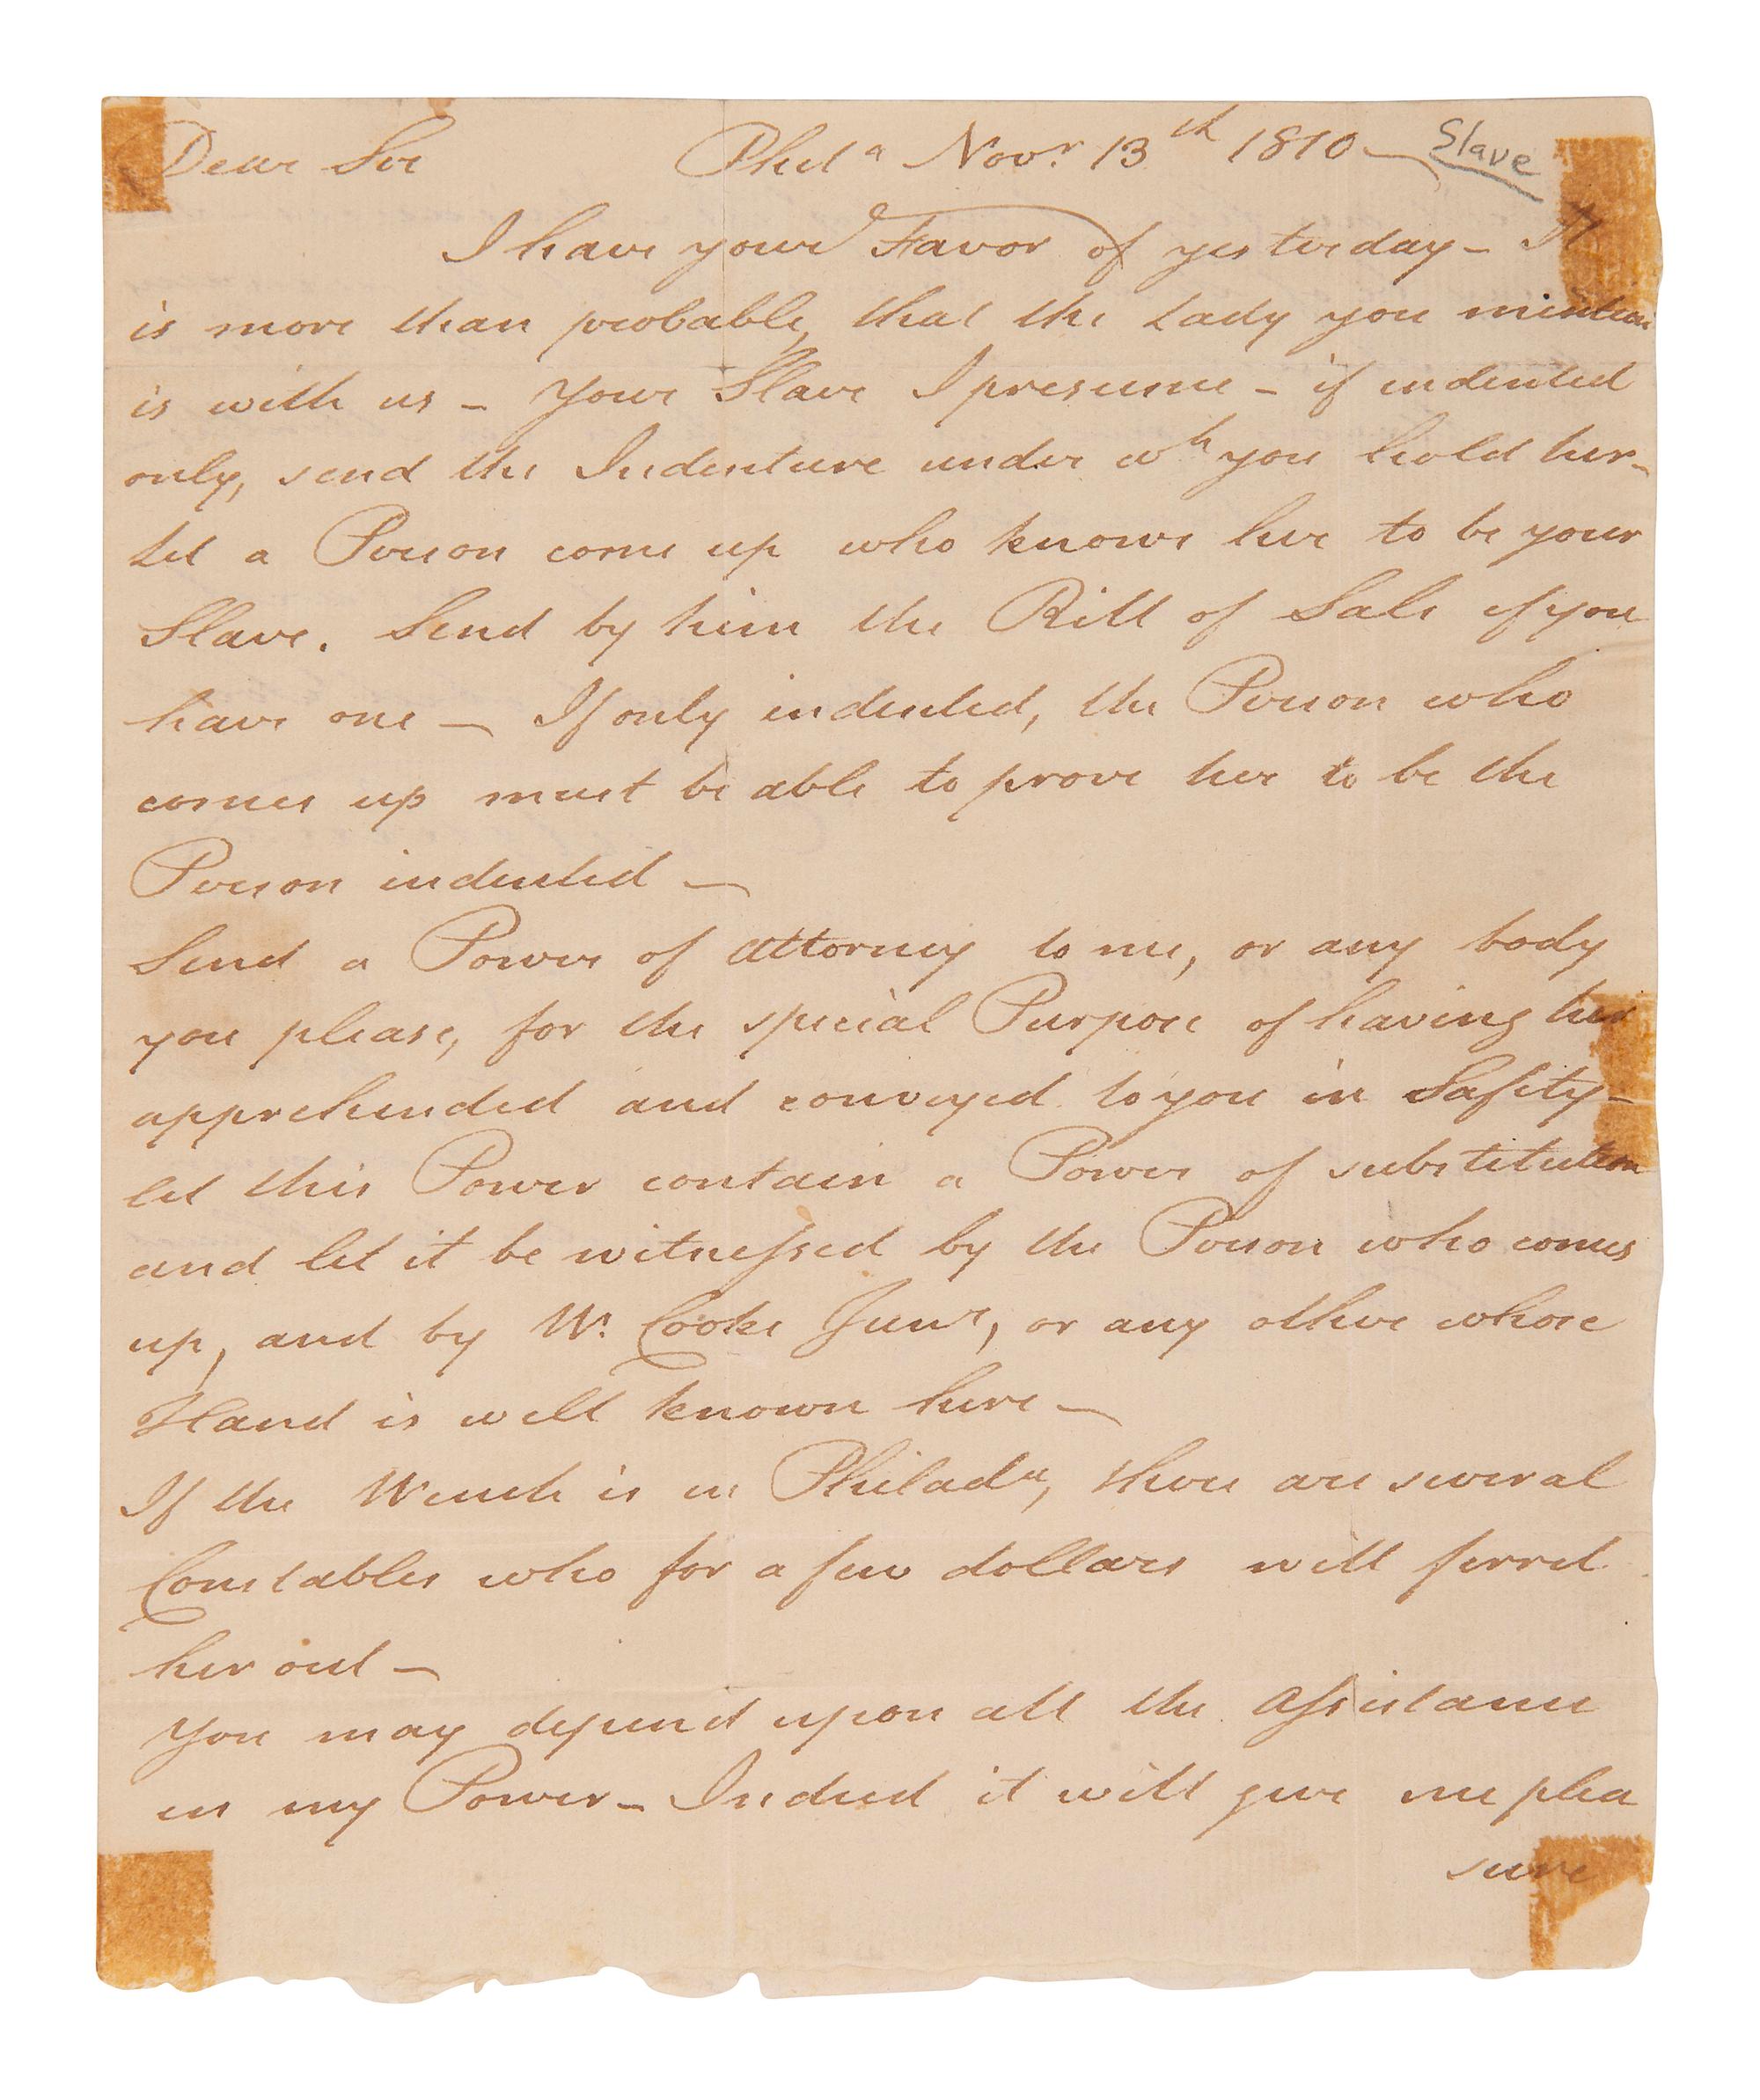 Dear Sir Phila Novr. 13th 1810 — Slave
I have your Favor of yesterday - It
is more than probable, that the Lady you mention
is with us - Your Slave I presume - if indented
only, send the Indenture under wh you hold her -
Let a Person come up who knows her to be your
Slave. Send by him the Bill of Sale if you
have one — If only indented, the Person who
comes up must be able to prove her to be the
Person indented —
Send a Power of Attorney to me, or any body
you please, for the special Purpose of having her
apprehended and conveyed to you in Safety -
let this Power contain a Power of substitution
and let it be witnessed by the Person who comes
up, and by W. Cooke Junr, or any other whose
Hand is well known here —
If the Wench is in Philada, there are several
Constables who for a few dollars will ferret
her out —
You may depend upon all the Assistance
in my Power - Indeed it will give me plea
sure